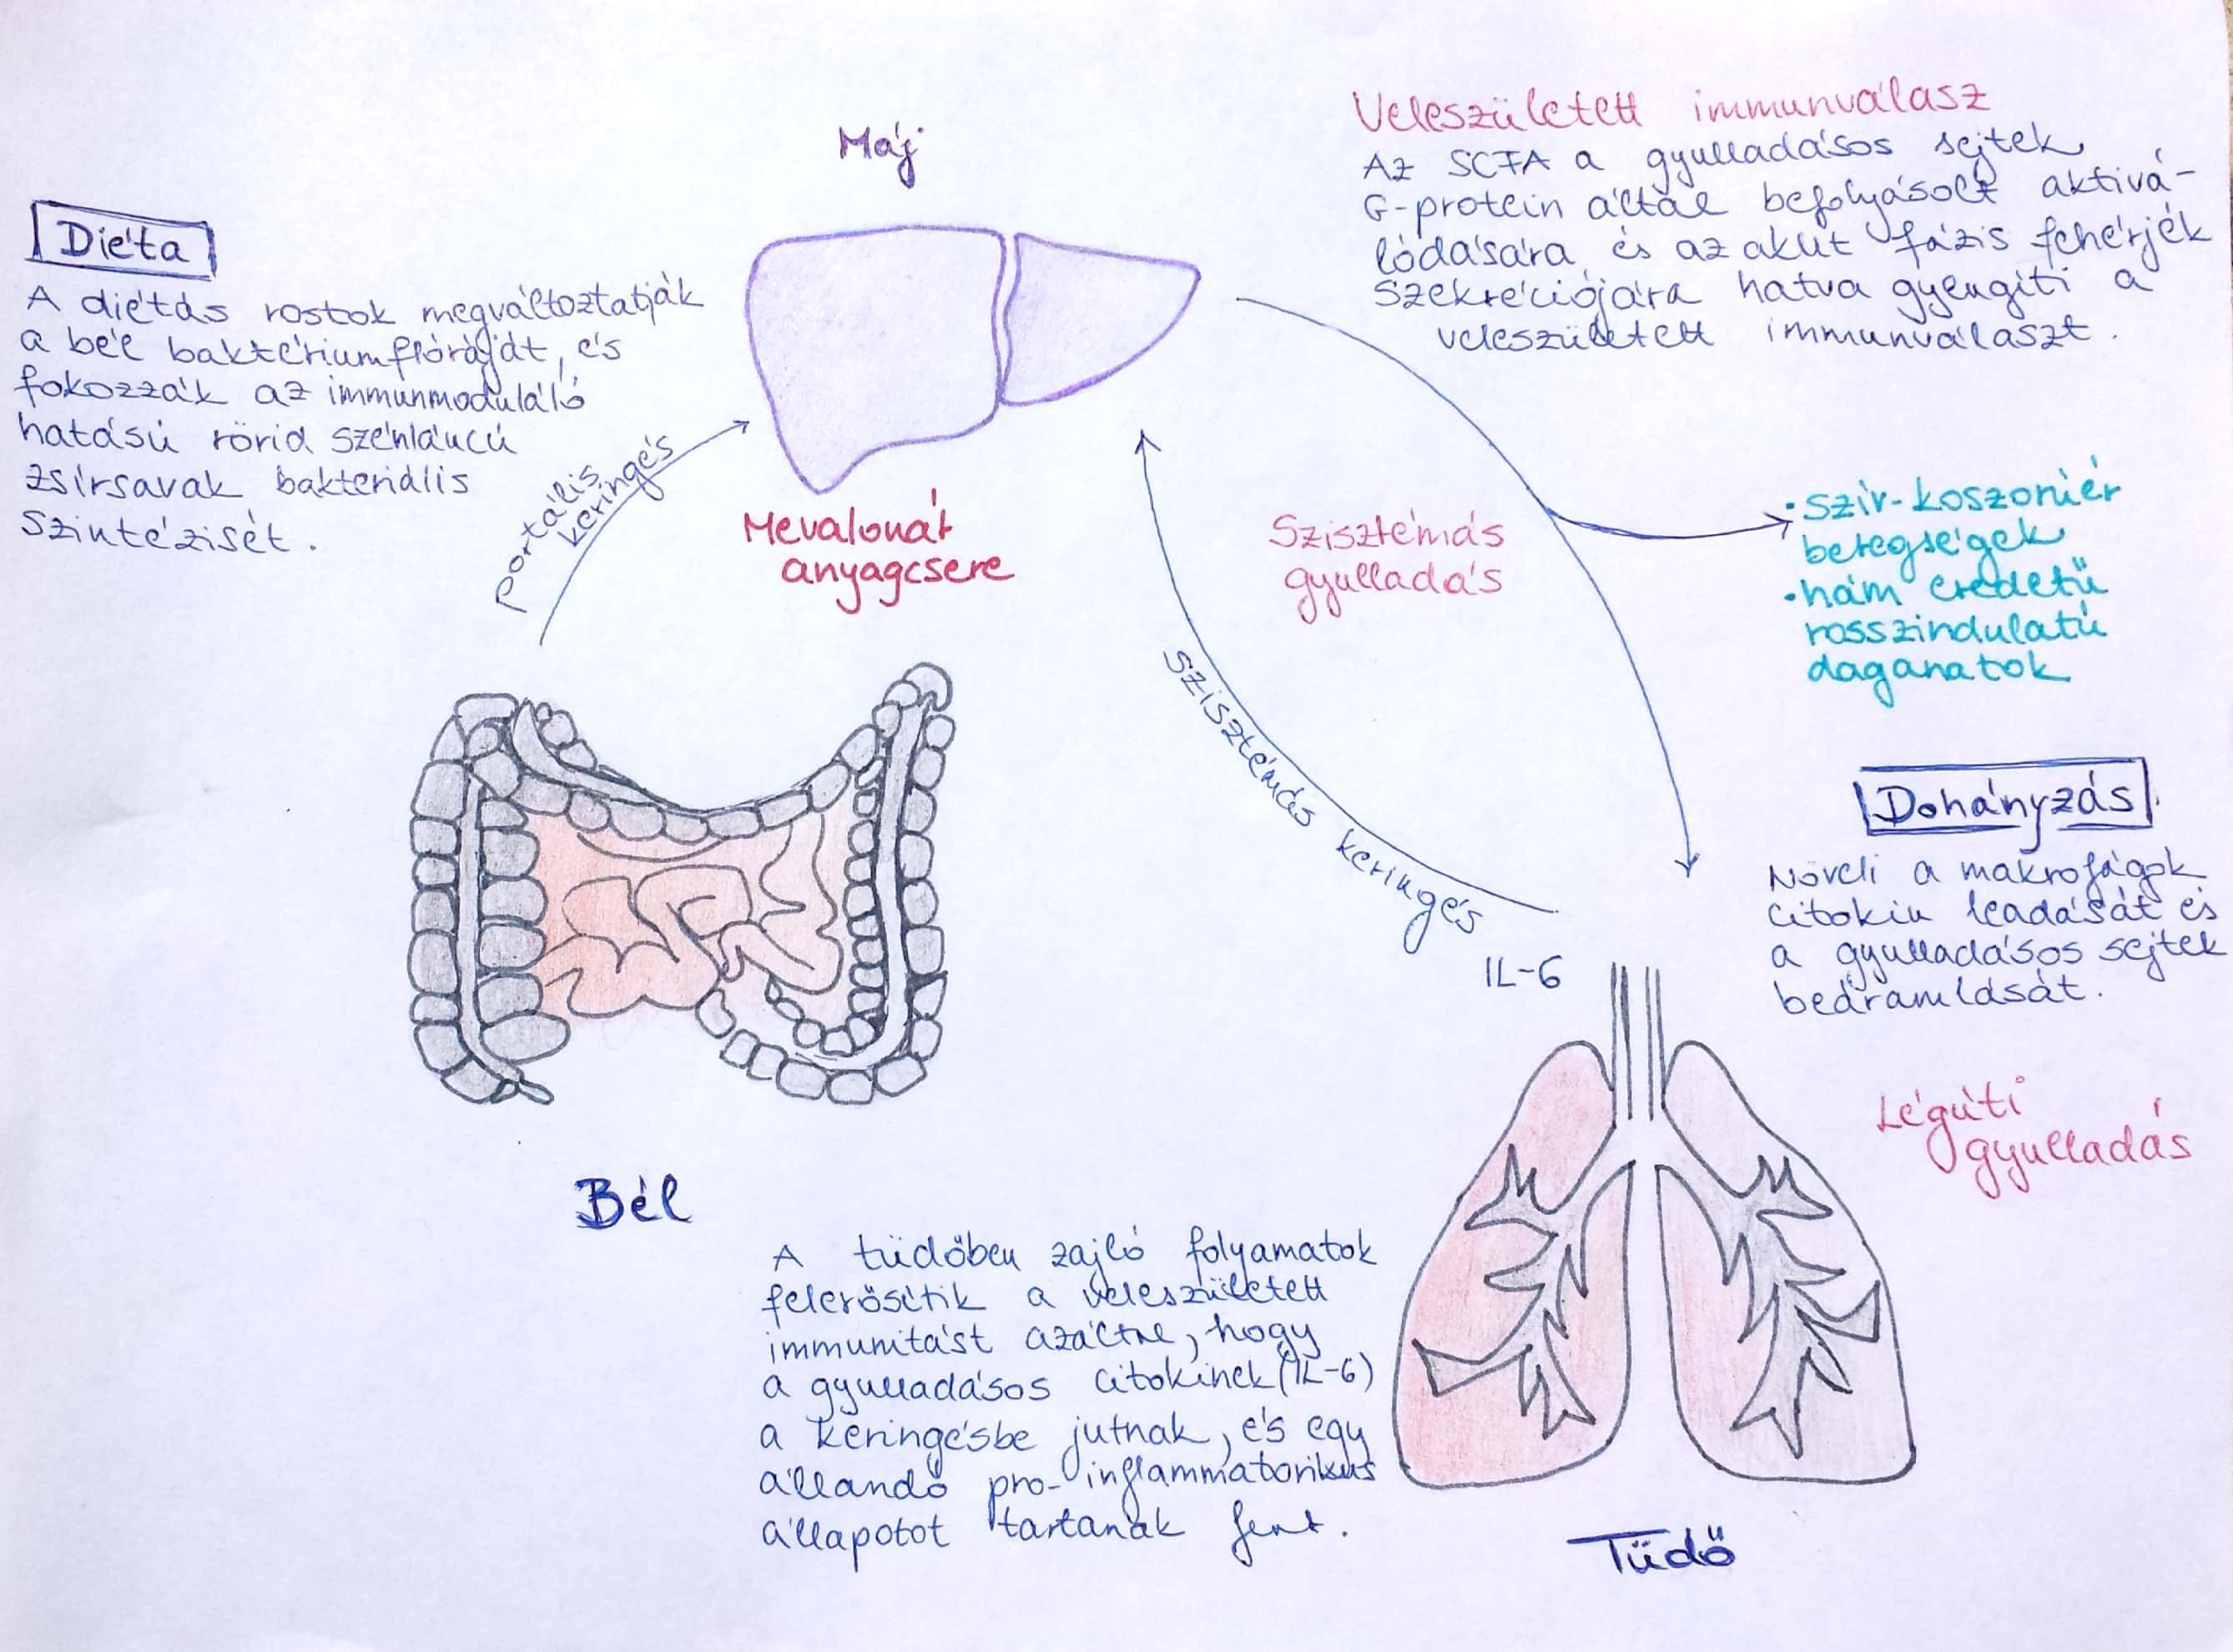 Máj
Diéta
A diétás rostok megváltoztatják
a bél baktériumflóráját, és
fokozzák az immunmoduláló
hatású rörid szénláncú
zsírsavak bakteriális
szintézisét.
portális
keringés
Mevalonát
anyagcsere
Veleszületett immunválasz
Az SCFA a gyulladásos sejtek
G-protein által befolyásolt aktivá-
lódására és az akut fázis fehérjék
szekréciójára hatva gyengíti a
veleszületett immunválaszt.
Szisztémás
gyulladás
• szív-koszorúér
betegségek
• hám eredetű
rosszindulatú
daganatok
szisztémás keringés
IL-6
Dohányzás
Növeli a makrofágok
citokin leadását és
a gyulladásos sejtek
beáramlását.
Légúti
gyulladás
Bél
A tüdőben zajló folyamatok
felerősítik a veleszületett
immunitást azáltal, hogy
a gyulladásos citokinek (IL-6)
a keringésbe jutnak, és egy
állandó pro-inflammatorikus
állapotot tartanak fent.
Tüdő